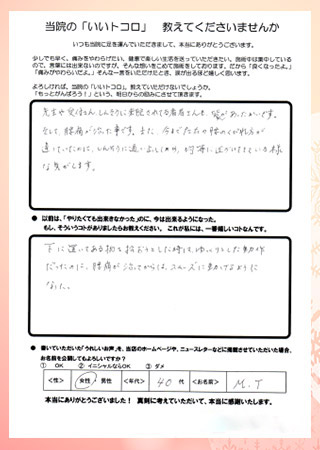 当院の「いいトコロ」　教えてくださいませんか
いつも当院に足を運んでいただきまして、本当にありがとうございます。
少しでも早く、痛みをやわらげたい、健康で楽しい生活を送っていただきたい。施術中は集中しているので、
言葉には出来ないのですが、そんな想いをこめて施術をしております。だから「良くなったよ。」
「痛みがやわらいだよ。」そんな一言をいただけたとき、涙が出るほど嬉しく思います。
よろしければ、当院の「いいトコロ」を教えていただけないでしょうか。
「もっとがんばろう!」という、毎日からの励みにさせて頂きます。
そして、腰痛が治った事です。また、今まで
な気がします。
● 以前は、「やりたくても出来なかった」のに、今は出来るようになった。
もし、そういうコトがありましたらお教えください。これが私には、一番嬉しいコトなんです。
下に置いてある物を拾おうとした時も、ゆっくりとした動作
だったのに、腰痛が治ってからは、スムーズに動けるように
なった。
● 書いていただいた「うれしいお声」を、当店のホームページや、ニュースレターなどに掲載させていただいた場合、
お名前を公開してもよろしいですか?
① OK　② イニシャルならOK　③ ダメ
<性> 女性・男性 <年代> 40代 <お名前> M.T
本当にありがとうございました!　真剣に考えていただいて、本当に感謝いたします。